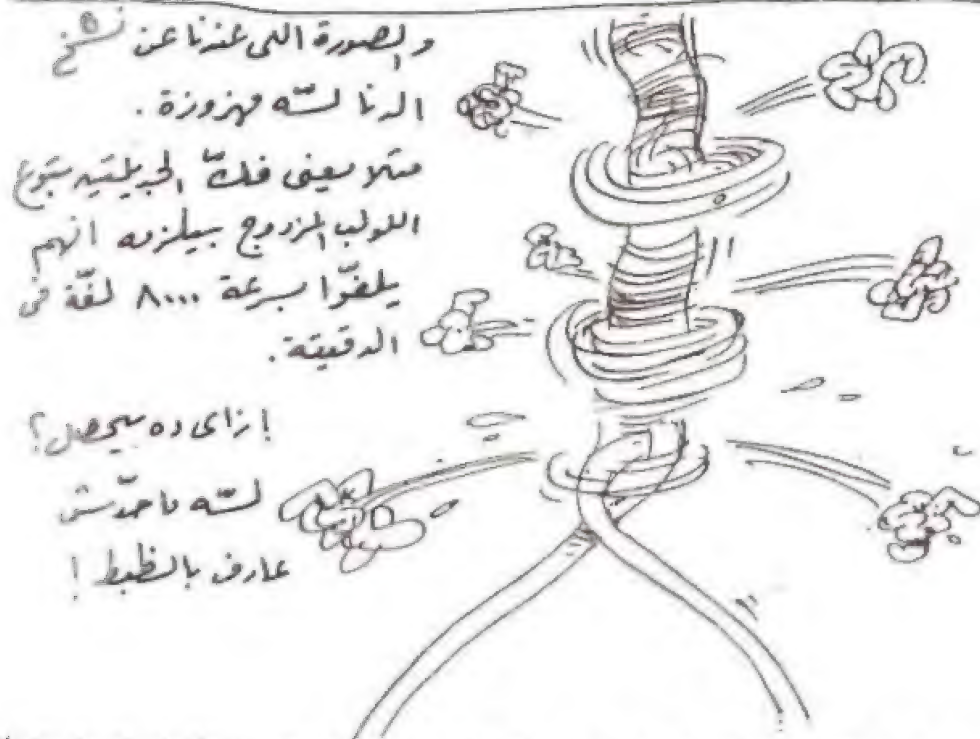 والصورة اللى عندنا عن نسخ
الدنا لسّه مهزوزة.
مثلا يعنى فكّ الجديلتين بتوع
اللولب المزدوج بيلزمه انهم
يلفّوا بسرعة ٨٠٠٠ لفّة فى
الدقيقة.
ازاى ده بيحصل؟
لسّه ماحدّش
عارف بالظبط!